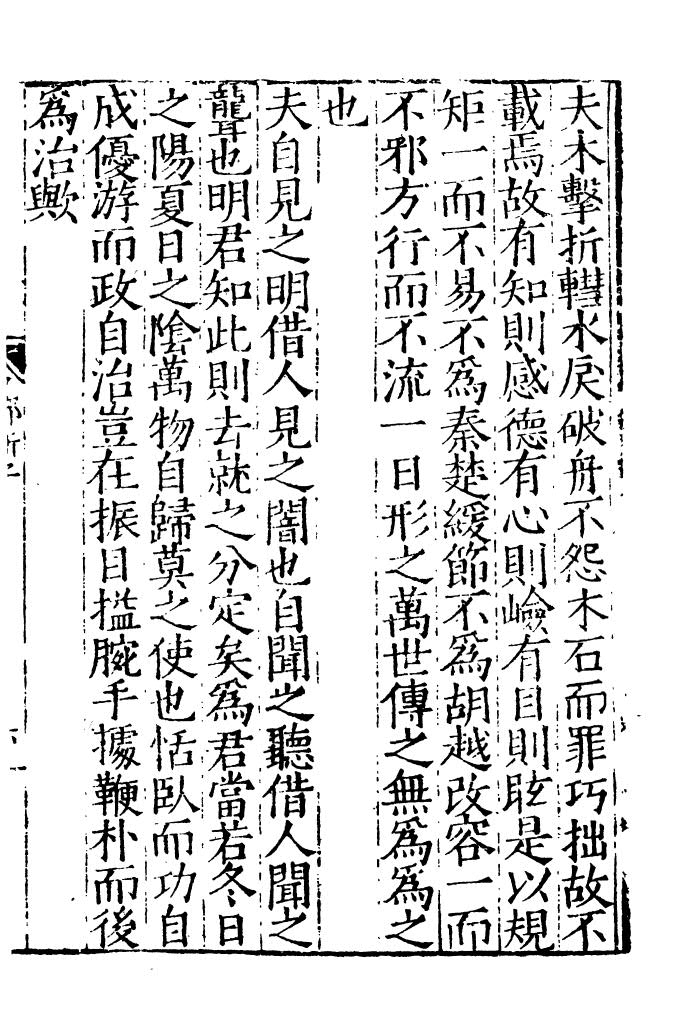 夫木擊折轊水戾破舟不怨木石而罪巧拙故不
載焉故有知則感德有心則嶮有目則眩是以規
矩一而不易不爲秦楚緩節不爲胡越改容一而
不邪方行而不流一日形之萬世傳之無爲爲之
也
夫自見之明借人見之闇也自聞之聽借人聞之
聾也明君知此則去就之分定矣爲君當若冬日
之陽夏日之陰萬物自歸莫之使也恬臥而功自
成優游而政自治豈在振目搤腕手據鞭朴而後
爲治歟